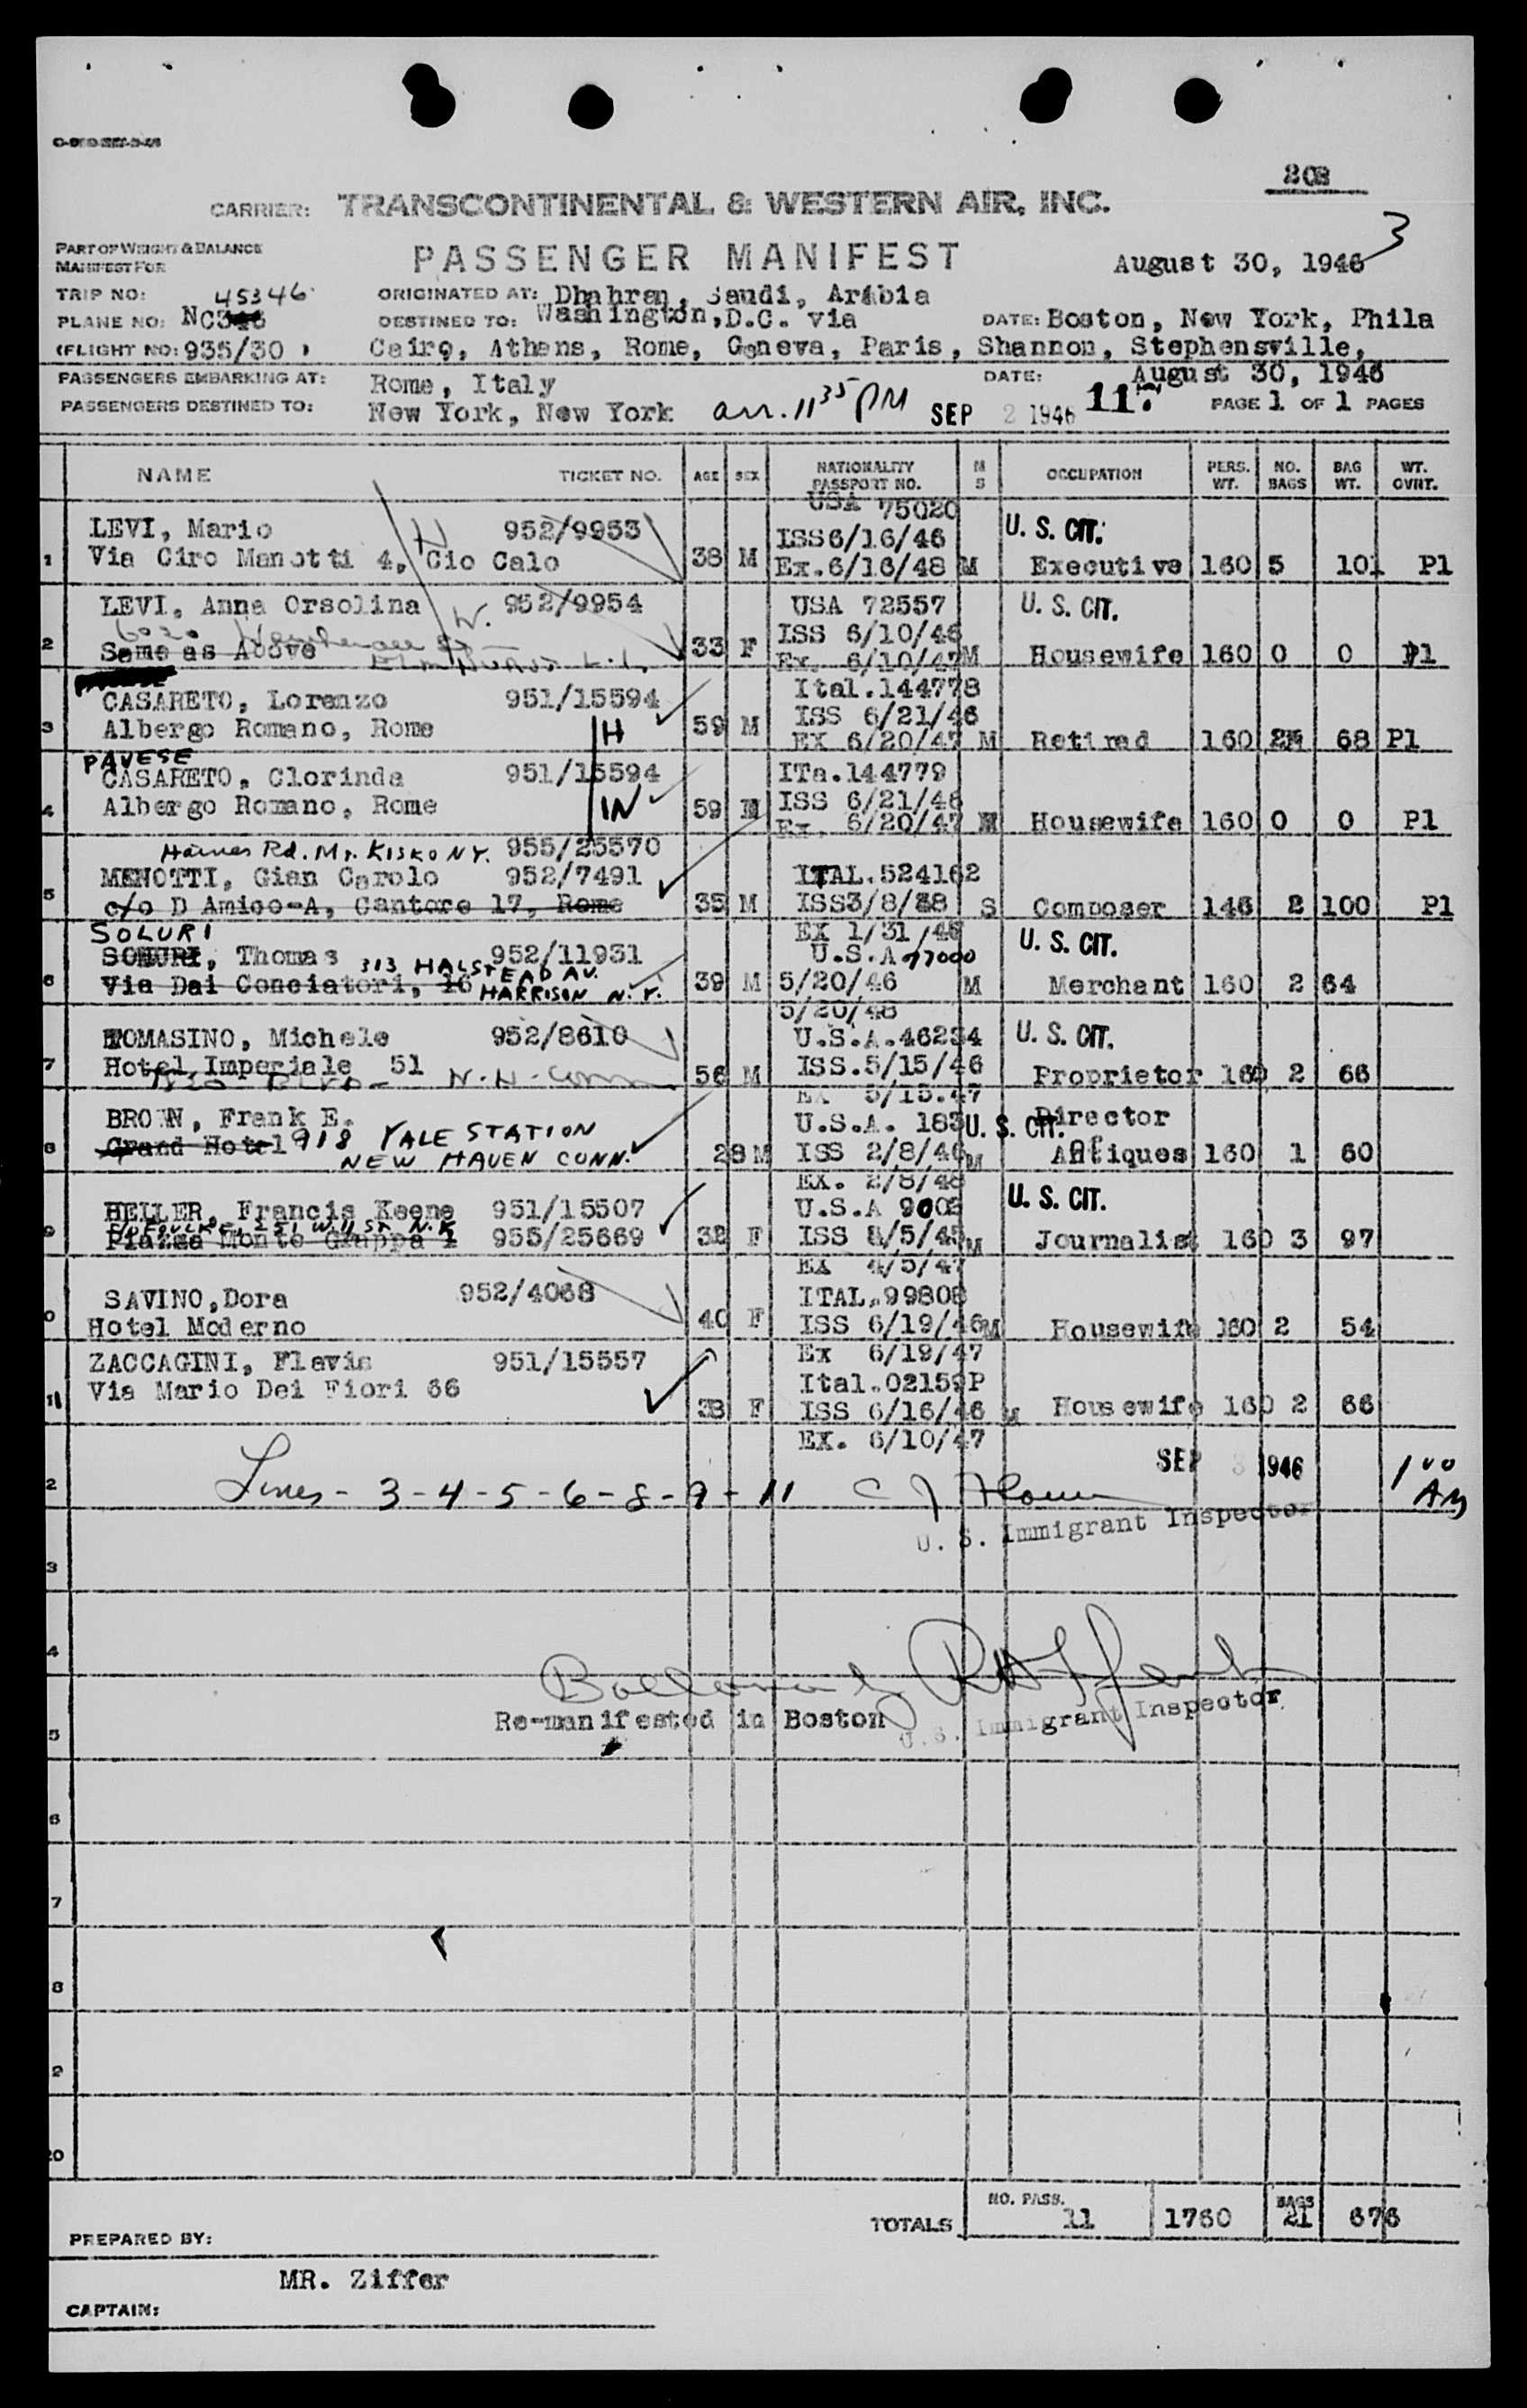 203
CARRIER: TRANSCONTINENTAL & WESTERN AIR, INC.
3
PART OF WEIGHT & BALANCE
MANIFEST FOR
PASSENGER MANIFEST
August 30, 1946
TRIP NO: 45346
ORIGINATED AT: Dhahran, Saudi, Arabia
PLANE NO: NC346
DESTINED TO: Washington, D.C. via
DATE: Boston, New York, Phila
(FLIGHT NO: 935/30 )
Cairo, Athens, Rome, Geneva, Paris, Shannon, Stephensville,
PASSENGERS EMBARKING AT: Rome, Italy
DATE: August 30, 1946
PASSENGERS DESTINED TO: New York, New York arr. 11 35 PM SEP 2 1946 11 PAGE 1 OF 1 PAGES
NAME TICKET NO. AGE SEX NATIONALITY PASSPORT NO. M S OCCUPATION PERS. WT. NO. BAGS BAG WT. WT. OVRT.
USA 75020
LEVI, Mario H 952/9953 ISS6/16/46 U. S. CIT.
1 Via Ciro Manotti 4, Cio Calo 38 M Ex.6/16/48 M Executive 160 5 101 Pl
LEVI, Anna Orsolina W. 952/9954 USA 72557 U. S. CIT.
ISS 6/10/46
2 Same as Above 33 F Ex. 6/10/47 M Housewife 160 0 0 Pl
CASARETO, Lorenzo 951/15594 Ital.144778
ISS 6/21/46
3 Albergo Romano, Rome H 59 M EX 6/20/47 M Retired 160 68 Pl
PAVESE
CASARETO, Clorinda 951/15594 ITa.144779
ISS 6/21/46
4 Albergo Romano, Rome IN 59 Ex. 6/20/47 Housewife 160 0 0 Pl
Haines Rd. Mt. KISKO NY. 955/25570
MENOTTI, Gian Carolo 952/7491 ITAL.524162
5 c/o D Amico-A, Cantore 17, Rome 35 M ISS3/8/38 S Composer 146 2 100 Pl
EX 1/31/48
SOLURI
, Thomas 952/11931 U.S.A 77000 U. S. CIT.
313 HALSTEAD AV.
6 Via Dai Conciatori, 16 HARRISON N.Y. 39 M 5/20/46 M Merchant 160 2 64
5/20/48
TOMASINO, Michele 952/8610 U.S.A.46234 U. S. CIT.
7 Hotel Imperiale 51 N.H. Conn 56 M ISS.5/15/46 Proprietor 160 2 66
EX 5/15.47
BROWN, Frank E. U.S.A. 183 U. S. CIT. Director
of
8 Grand Hotel 918 YALE STATION 28 M ISS 2/8/46 M Antiques 160 1 60
NEW HAVEN CONN.
EX. 2/8/48
HELLER, Francis Keene 951/15507 U.S.A 9002 U. S. CIT.
9 Piazza Monte Grappa 1 955/25669 32 F ISS /5/45 M Journalist 160 3 97
EX 4/5/47
SAVINO,Dora 952/4068 ITAL.99808
10 Hotel Moderno 40 F ISS 6/19/46 M Housewife 160 2 54
Ex 6/19/47
ZACCAGINI, Flavia 951/15557 Ital.02159P
11 Via Mario Dei Fiori 66 33 F ISS 6/16/46 M Housewife 160 2 66
EX. 6/10/47
SEP 3 1946 1 00 AM
2 Lines - 3 - 4 - 5 - 6 - 8 - 9 - 11
U. S. Immigrant Inspector
3
4
Re-manifested in Boston U. S. Immigrant Inspector
5
6
7
8
9
20
TOTALS NO. PASS. 11 1760 BAGS 21 676
PREPARED BY:
MR. Ziffer
CAPTAIN: